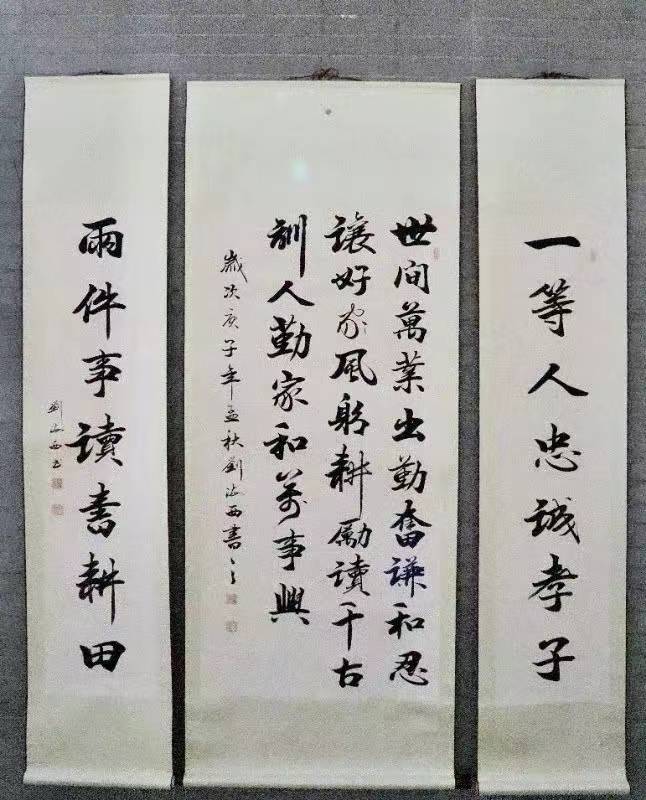 一等人忠誠孝子
世间萬業出勤奮謙和忍
讓好家風躬耕勵讀千古
訓人勤家和萬事興
歲次庚子年孟秋劉海西書之
兩件事讀書耕田
劉海西书